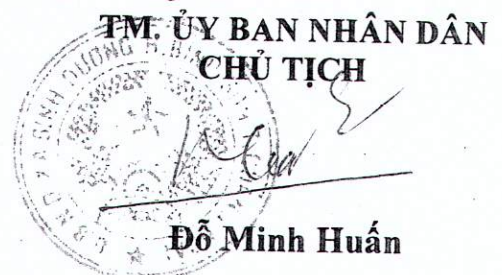 TM. ỦY BAN NHÂN DÂN
CHỦ TỊCH
Đỗ Minh Huấn